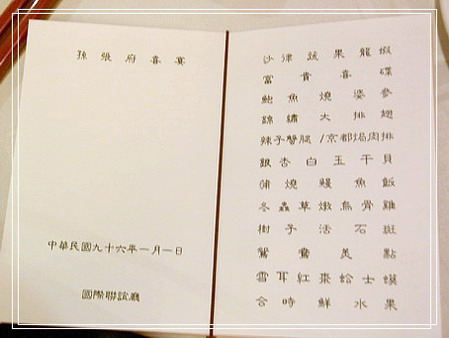 孫張府喜宴
中華民國九十六年一月一日
國際聯誼廳
沙律蔬果龍蝦
富貴喜碟
鮑魚燒婆參
錦繡大排翅
辣子蟹腿/京都焗肉排
銀杏白玉干貝
蒲燒鰻魚飯
冬蟲草燉烏骨雞
樹子活石斑
鴛鴦美點
雪耳紅棗蛤士蟆
合時鮮水果